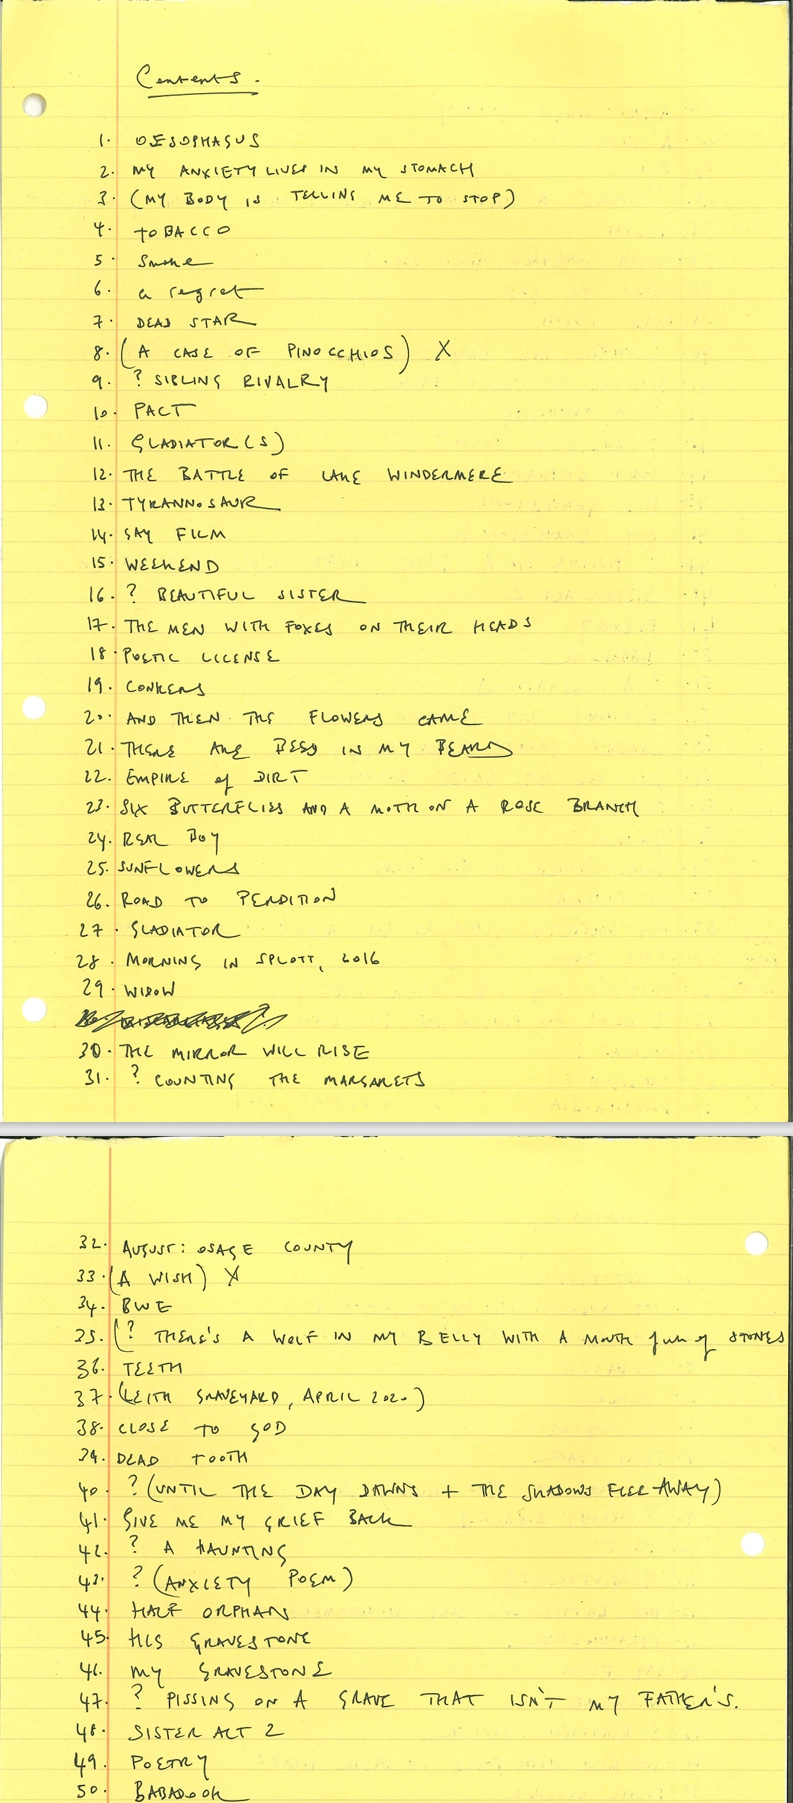 Contents.
1. OESOPHAGUS
2. MY ANXIETY LIVES IN MY STOMACH
3. (MY BODY IS TELLING ME TO STOP)
4. TOBACCO
5. Smoke
6. a regret
7. DEAD STAR
8. (A CASE OF PINOCCHIOS) X
9. ? SIBLING RIVALRY
10. PACT
11. GLADIATOR(S)
12. THE BATTLE OF LAKE WINDERMERE
13. TYRANNOSAUR
14. SAY FILM
15. WEEKEND
16. ? BEAUTIFUL SISTER
17. THE MEN WITH FOXES ON THEIR HEADS
18. POETIC LICENSE
19. CONKERS
20. AND THEN THE FLOWERS CAME
21. THERE ARE BEES IN MY BEARD
22. EMPIRE of DIRT
23. SIX BUTTERFLIES AND A MOTH ON A ROSE BRANCH
24. REAL BOY
25. SUNFLOWERS
26. ROAD TO PERDITION
27. GLADIATOR
28. MORNING IN SPLOTT, 2016
29. WIDOW
30. THE MIRROR WILL RISE
31. ? COUNTING THE MARGARETS
32. AUGUST: OSAGE COUNTY
33. (A WISH) X
34. BWE
35. (? THERE'S A WOLF IN MY BELLY WITH A MOUTH full of STONES
36. TEETH
37. (LEITH GRAVEYARD, APRIL 2020)
38. CLOSE TO GOD
39. DEAD TOOTH
40. ? (UNTIL THE DAY DAWNS + THE SHADOWS FLEE AWAY)
41. GIVE ME MY GRIEF BACK
42. ? A HAUNTING
43. ? (ANXIETY POEM)
44. HALF ORPHAN
45. HIS GRAVESTONE
46. MY GRAVESTONE
47. ? PISSING ON A GRAVE THAT ISN'T MY FATHER'S.
48. SISTER ACT 2
49. POETRY
50. BABADOOK